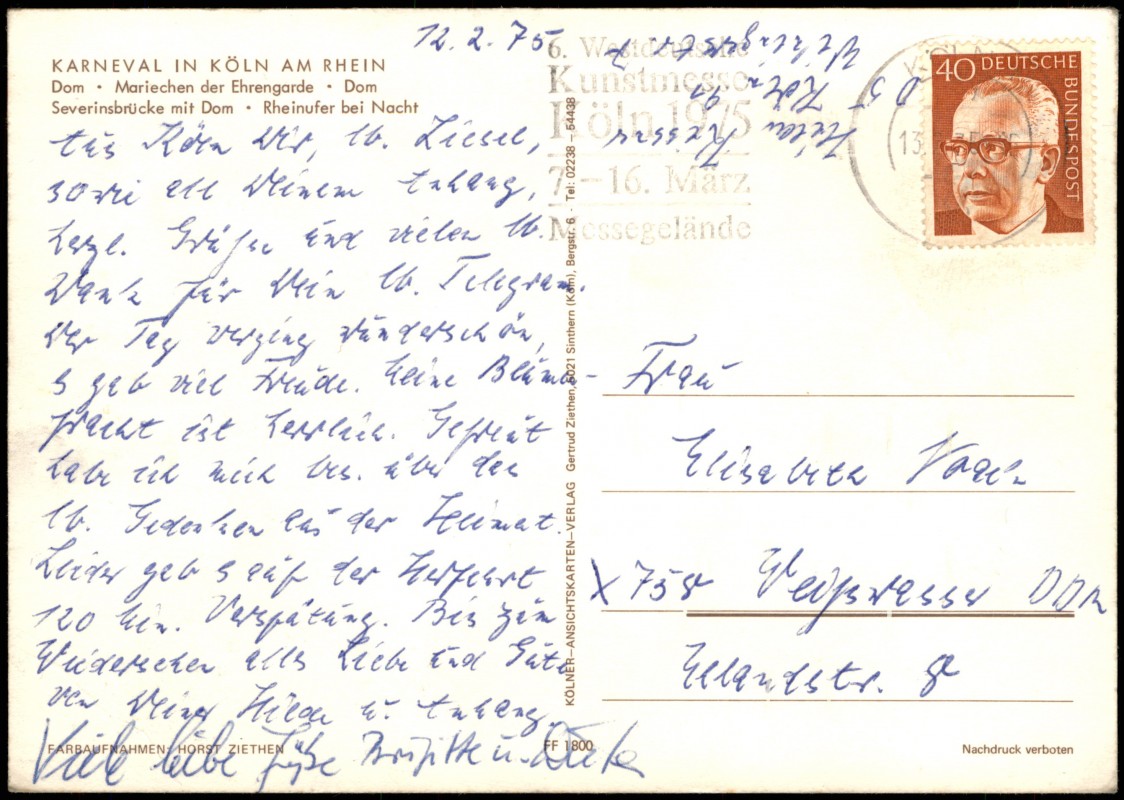 12.2.75
KARNEVAL IN KÖLN AM RHEIN
Dom • Mariechen der Ehrengarde • Dom
Severinsbrücke mit Dom • Rheinufer bei Nacht
Aus Köln Dir, lb. Liesel,
sowie all Deinem Anhang,
herzl. Grüße und vielen lb.
Dank für Dein lb. Telegram.
Der Tag verging wunderschön,
s gab viel Freude. Meine Blumen-
pracht ist herrlich. Gefreut
habe ich mich bes. über das
lb. Gedenken aus der Heimat.
Leider gab s auf der Herfahrt
120 Min. Verspätung. Bis zum
Wiedersehen alles Liebe und Gute
von Deiner Hilde u. Anhang.
Viele liebe Grüße Brigitte u.
FARBAUFNAHMEN: HORST ZIETHEN
FF 1800
KÖLNER–ANSICHTSKARTEN–VERLAG Gertrud Ziethen, 5021 Sinthern (Köln), Bergstr. 6 · Tel: 02238 – 54438
6. Westdeutsche
Kunstmesse
Köln 1975
7.–16. März
Messegelände
Hilda
5 Köln 91
KÖLN
13
40 DEUTSCHE
BUNDESPOST
Frau
Elisabeth
X 758 Weißwasser DDR
8
Nachdruck verboten